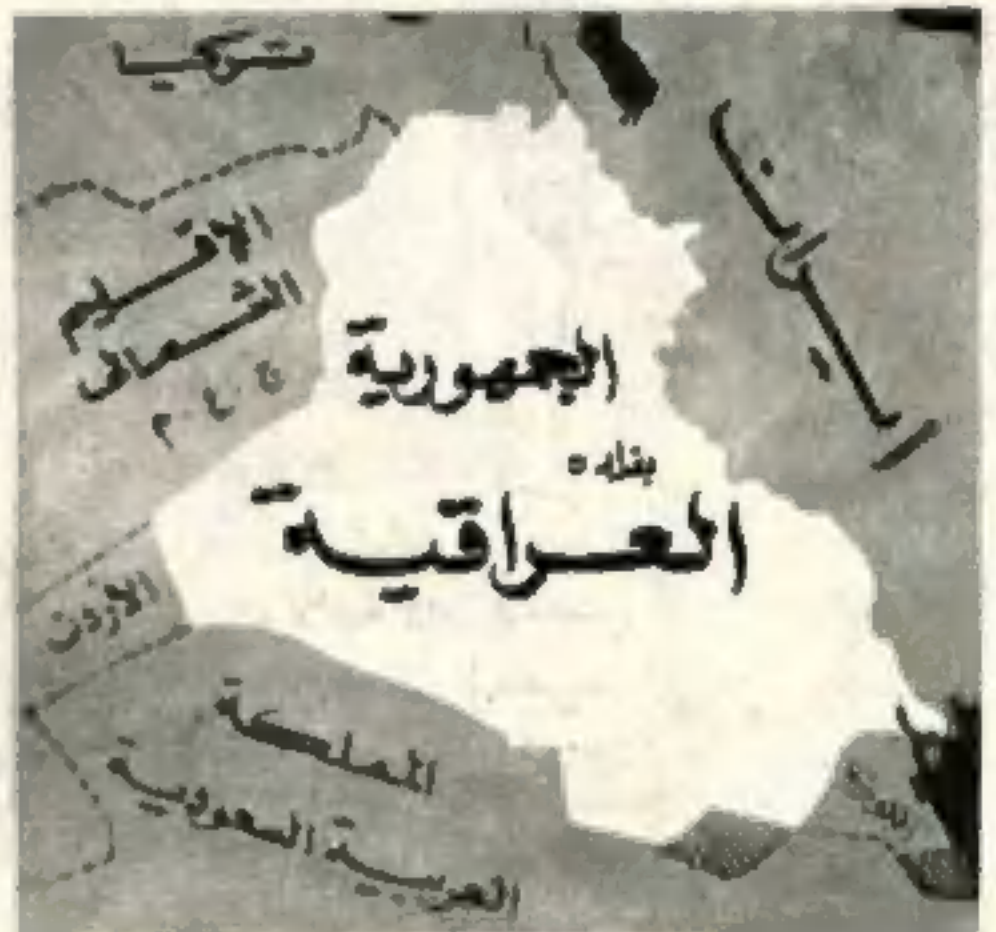 تركيا
ايران
الاقليم
الشمالى
ج.ع.م
الجمهورية
بغداد
العراقية
الأردن
المملكة
العربية السعودية